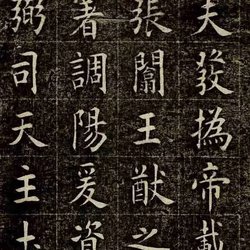 夫發撝帝載
張闡王猷之
著調陽爰資
弼司天主